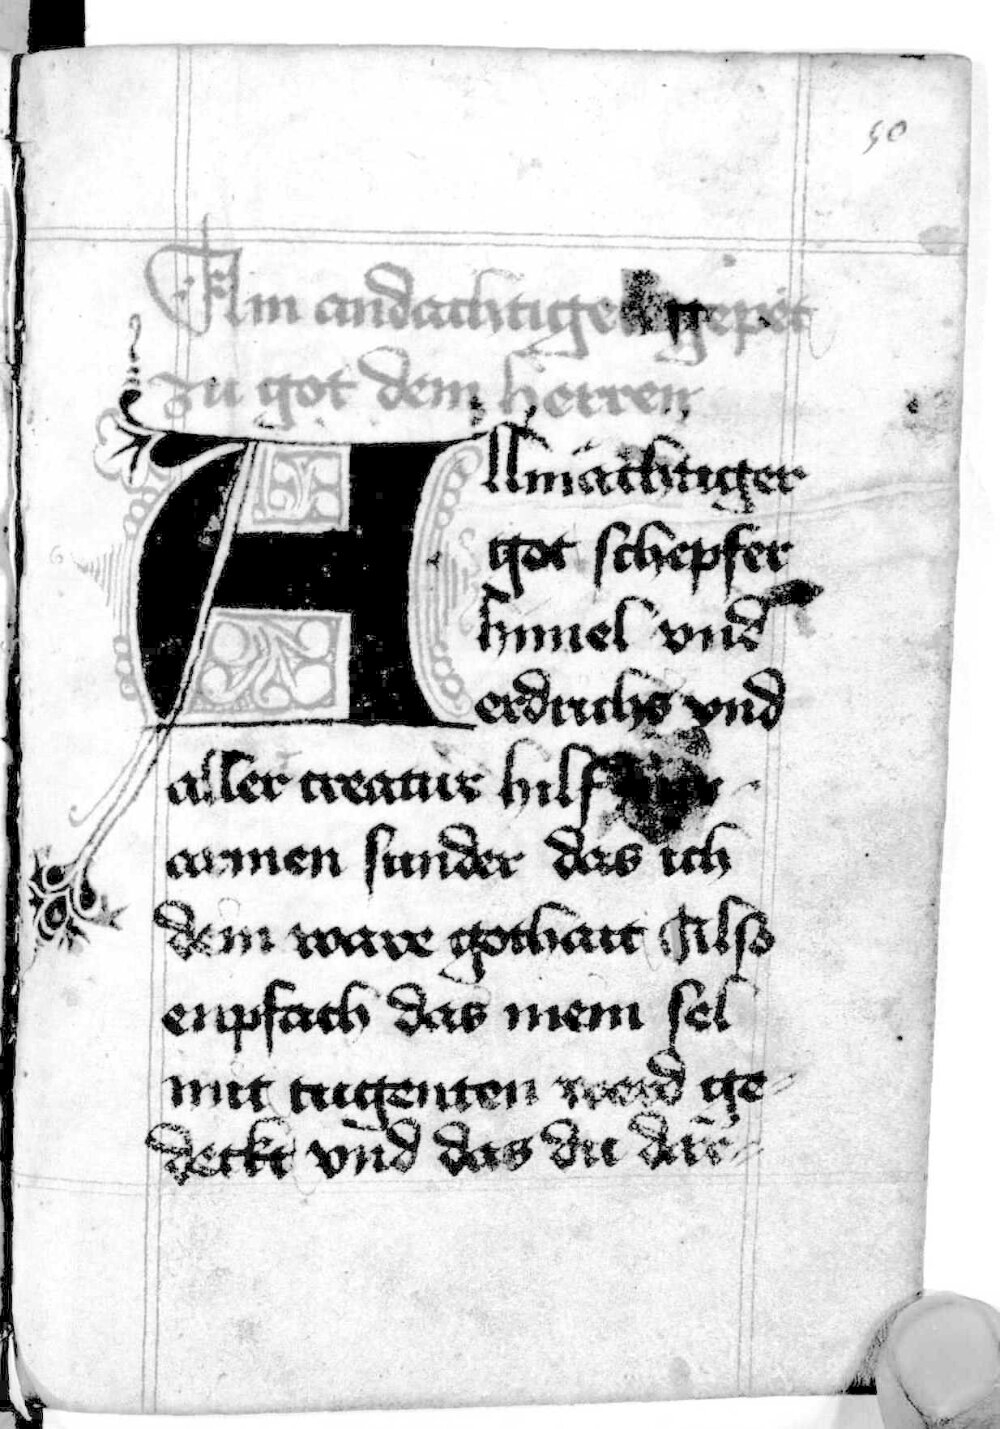 50
Ain andachtiger gepet
zu got dem herren
Allmächtiger
got schepfer
himel vnd
erdrichs vnd
aller creatur hilf mir
armen sunder das ich
dein ware gothait Also
enpfach das mein sel
mit tugenten werd ge-
deckt vnd das du dar-